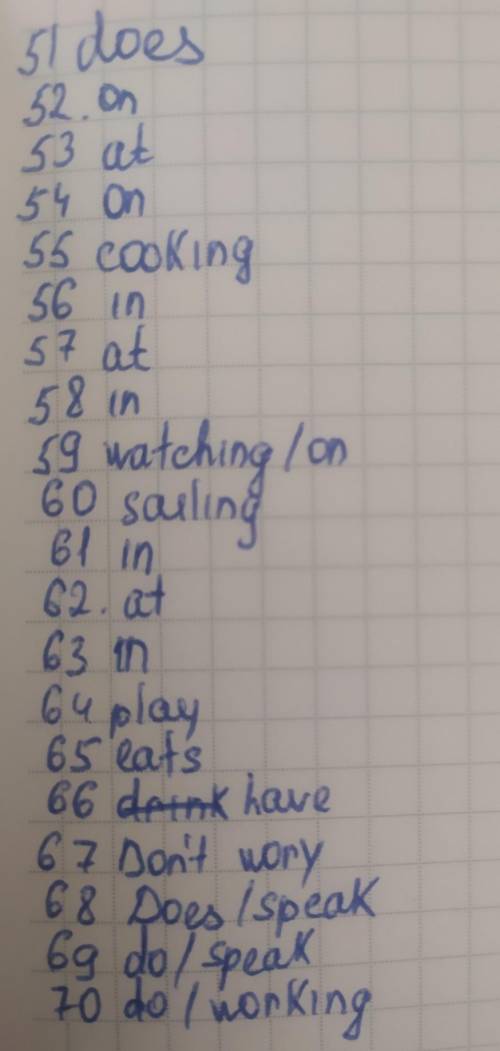 51 does
52. on
53 at
54 on
55 cooking
56 in
57 at
58 in
59 watching / on
60 sailing
61 in
62. at
63 in
64 play
65 eats
66 drink have
67 Don't wory
68 Does / speak
69 do / speak
70 do / working